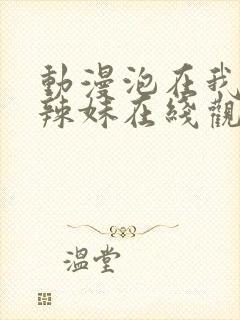 動漫泡在我
辣妹在綫觀
溫堂